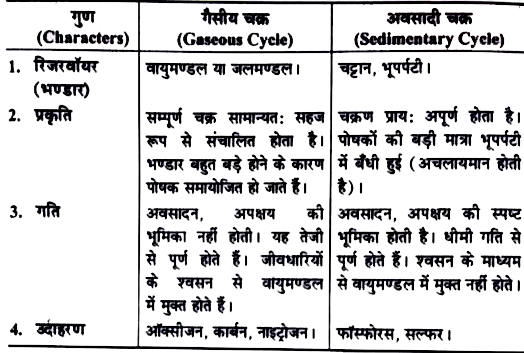 गुण गैसीय चक्र अवसादी चक्र
(Characters) (Gaseous Cycle) (Sedimentary Cycle)
1. रिजरवॉयर वायुमण्डल या जलमण्डल। चट्टान, भूपर्पटी।
(भण्डार)
2. प्रकृति सम्पूर्ण चक्र सामान्यतः सहज चक्रण प्रायः अपूर्ण होता है।
रूप से संचालित होता है। पोषकों की बड़ी मात्रा भूपर्पटी
भण्डार बहुत बड़े होने के कारण में बँधी हुई (अचलायमान होती
पोषक समायोजित हो जाते हैं। है)।
3. गति अवसादन, अपक्षय की अवसादन, अपक्षय की स्पष्ट
भूमिका नहीं होती। यह तेजी भूमिका होती है। धीमी गति से
से पूर्ण होते हैं। जीवधारियों पूर्ण होते हैं। श्वसन के माध्यम
के श्वसन से वायुमण्डल से वायुमण्डल में मुक्त नहीं होते।
में मुक्त होते हैं।
4. उदाहरण ऑक्सीजन, कार्बन, नाइट्रोजन। फॉस्फोरस, सल्फर।